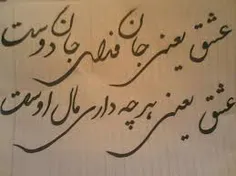 عشق یعنی جان فدای جان دوست
عشق یعنی هر چه داری مال اوست